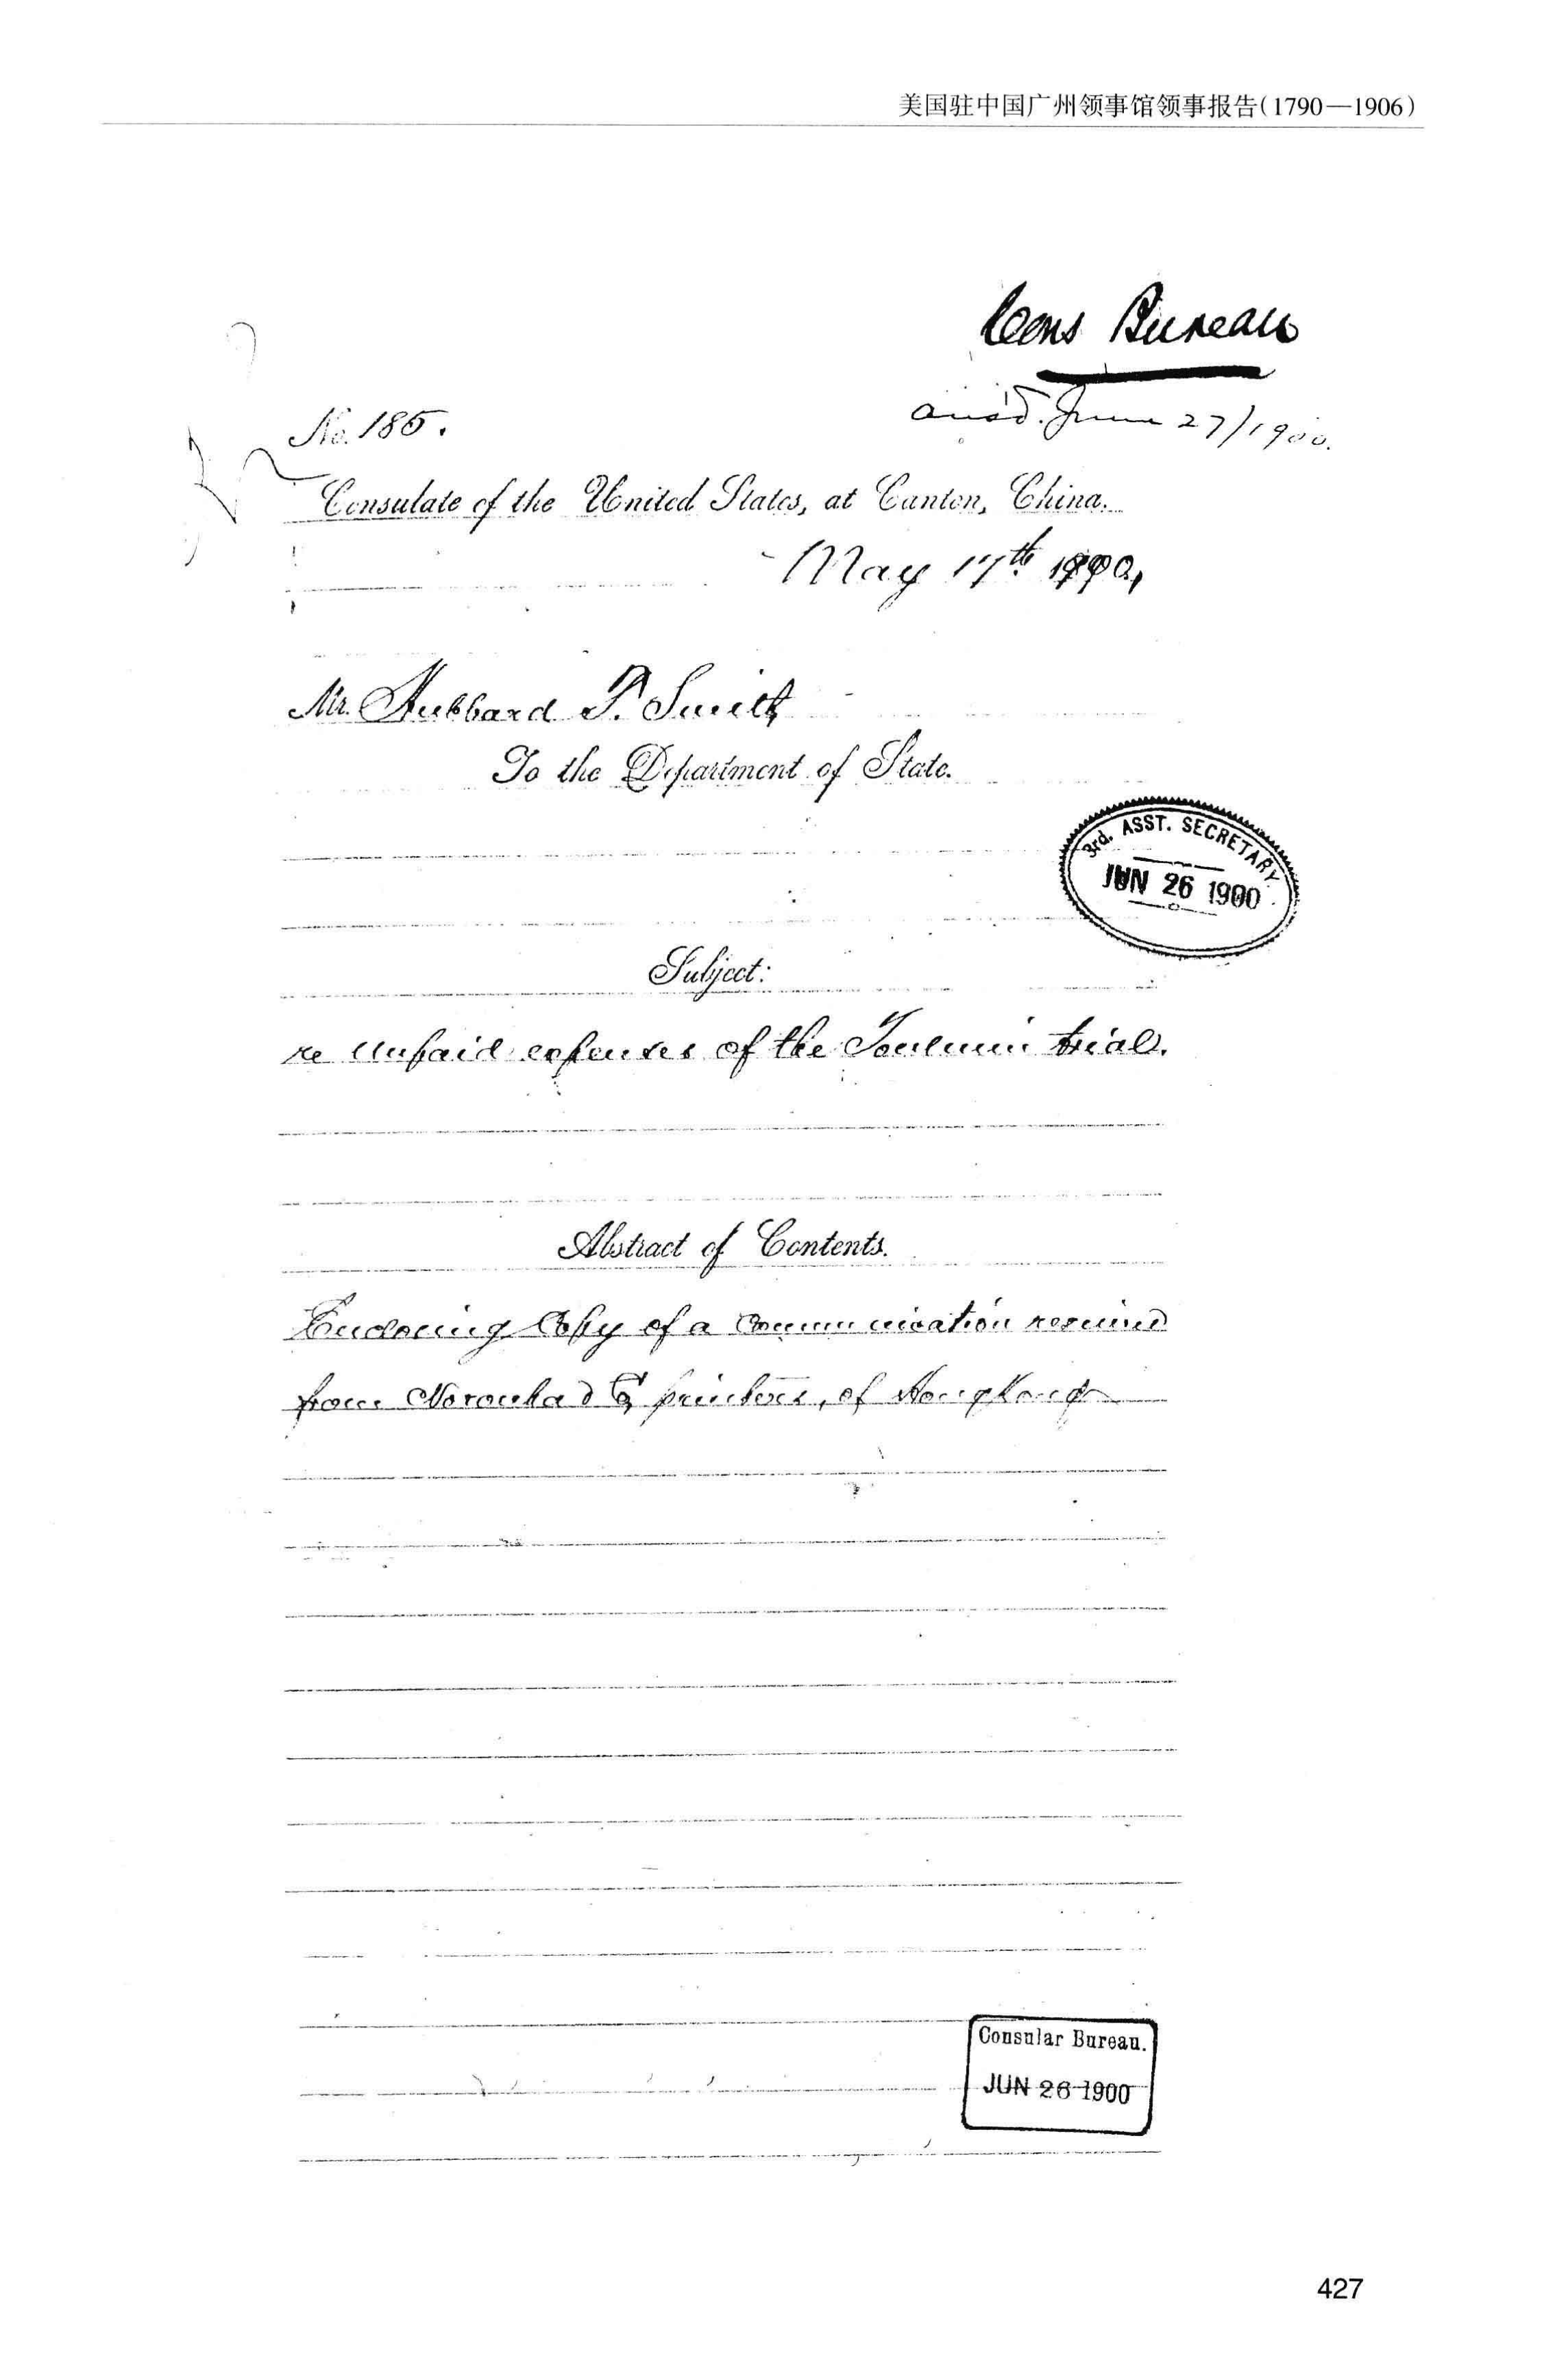 美国驻中国广州领事馆领事报告(1790—1906)
Cons Bureau
ans'd. June 27/1900.
No. 185.
Consulate of the United States, at Canton, China.
May 17th 1900,
Mr. Hubbard T. Smith
To the Department of State.
3rd. ASST. SECRETARY.
JUN 26 1900
Subject:
re unpaid expenses of the Toulmin trial.
Abstract of Contents.
Enclosing Copy of a communication received
from Noronha & Co printers, of Hongkong
Consular Bureau.
JUN 26 1900
427